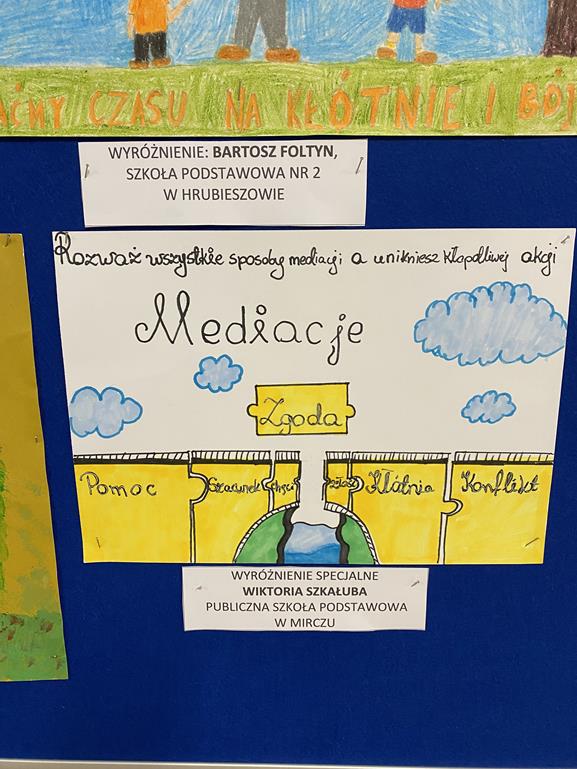 AĆMY CZASU NA KŁÓTNIE I BÓJ
WYRÓŻNIENIE: BARTOSZ FOLTYN,
SZKOŁA PODSTAWOWA NR 2
W HRUBIESZOWIE
Rozważ wszystkie sposoby mediacji a unikniesz kłopotliwej akcji
Mediacje
Zgoda
Pomoc Szacunek chęci złość Kłótnia Konflikt
WYRÓŻNIENIE SPECJALNE
WIKTORIA SZKAŁUBA
PUBLICZNA SZKOŁA PODSTAWOWA
W MIRCZU